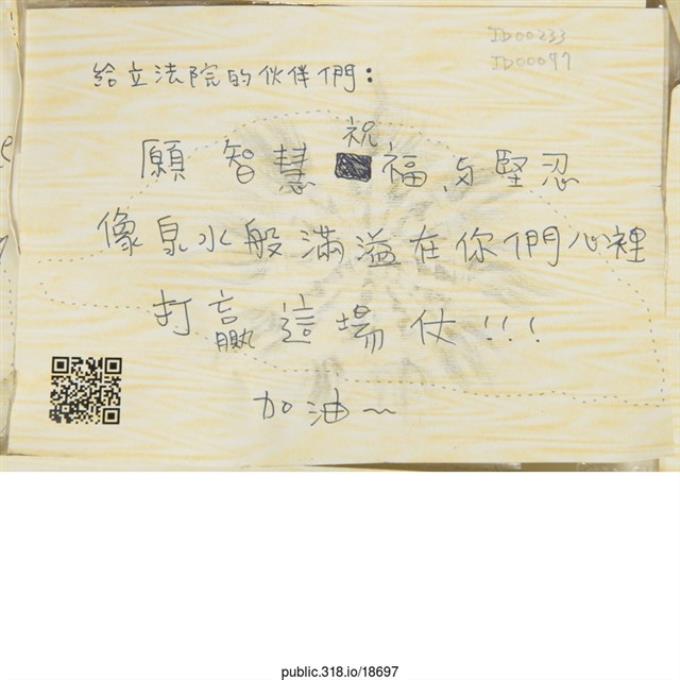 JD00233
JD00097
給立法院的伙伴們：
願智慧祝福与堅忍
像泉水般滿溢在你們心裡
打贏這場仗!!!
加油～
public.318.io/18697